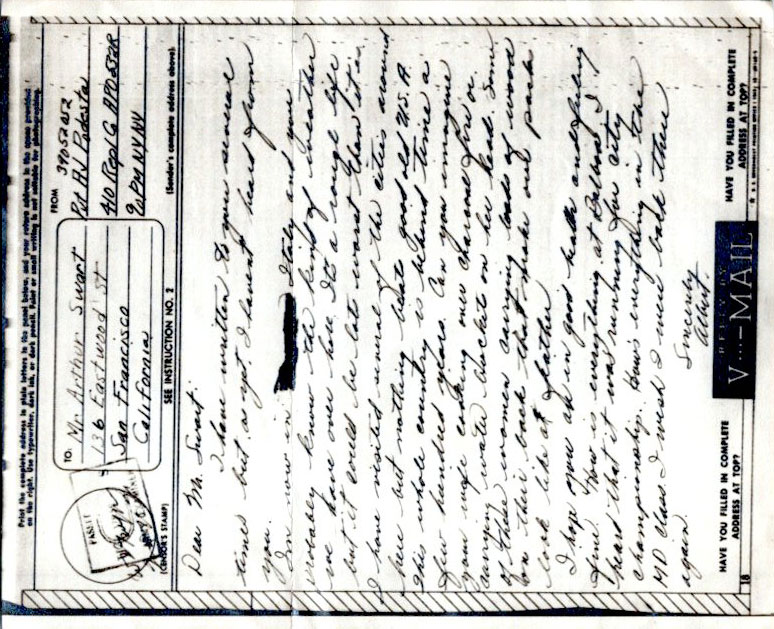 Print the complete address in plain letters in the panel below, and your return address in the space provided
on the right. Use typewriter, dark ink, or dark pencil. Faint or small writing is not suitable for photographing.
TO:
Mr. Arthur Swart
136 Eastwood St
San Francisco
California
FROM
39052052
Pvt A J Podesta
410 Repl G APO 552R
% PM NY NY
(Sender's complete address above)
(CENSOR'S STAMP)
SEE INSTRUCTION NO. 2
Dear Mr. Swart
I have written to you several
times but as yet I havent heard from
you.
Im now in Italy and you
probably know the kind of weather
we have over here. It's a rough life
but it could be lots worst than it is.
I have visited several of the cities around
here but nothing beats good old U.S.A.
this whole country is behind time a
few hundred years. Can you imagine
your wife cooking over charcoal fire or
carrying water bucket on her head. Some
of these women carring loads of wood
on their back that make our pack
look like a feather
I hope you all in good health and feeling
fine. How is everything at Balboa. I
heard that it was running for city
championship. Hows everything in the
MD class I wish I were back there
again.
Sincerly
Albert.
HAVE YOU FILLED IN COMPLETE
ADDRESS AT TOP?
REPLY BY
V···—MAIL
HAVE YOU FILLED IN COMPLETE
ADDRESS AT TOP?